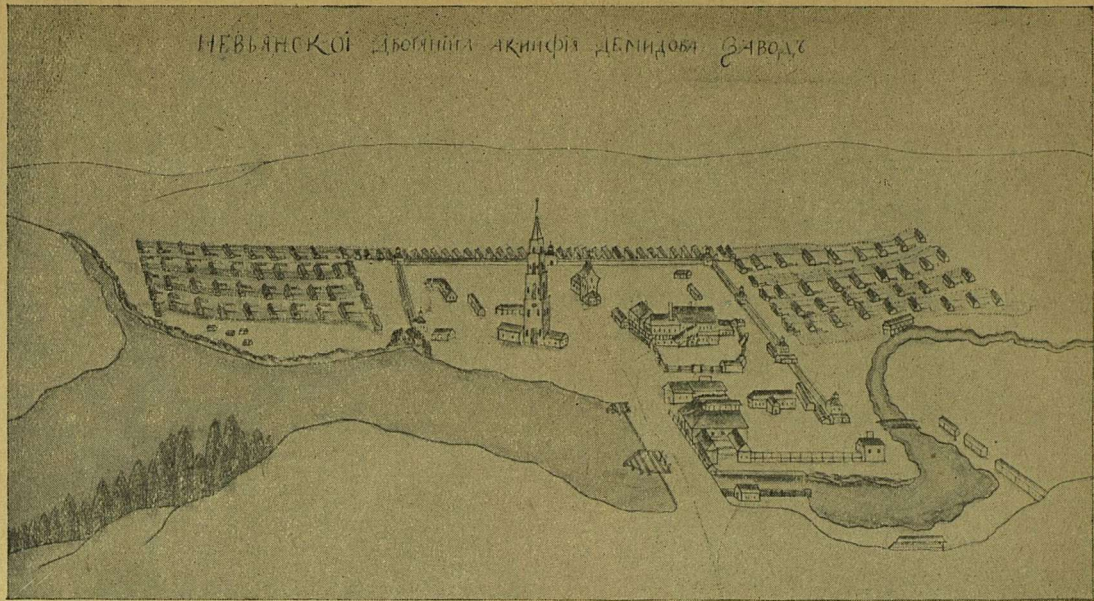 НЕВЬЯНСКОІ ДВОРЯНИНА АКИНФІЯ ДЕМИДОВА ЗАВОДЪ